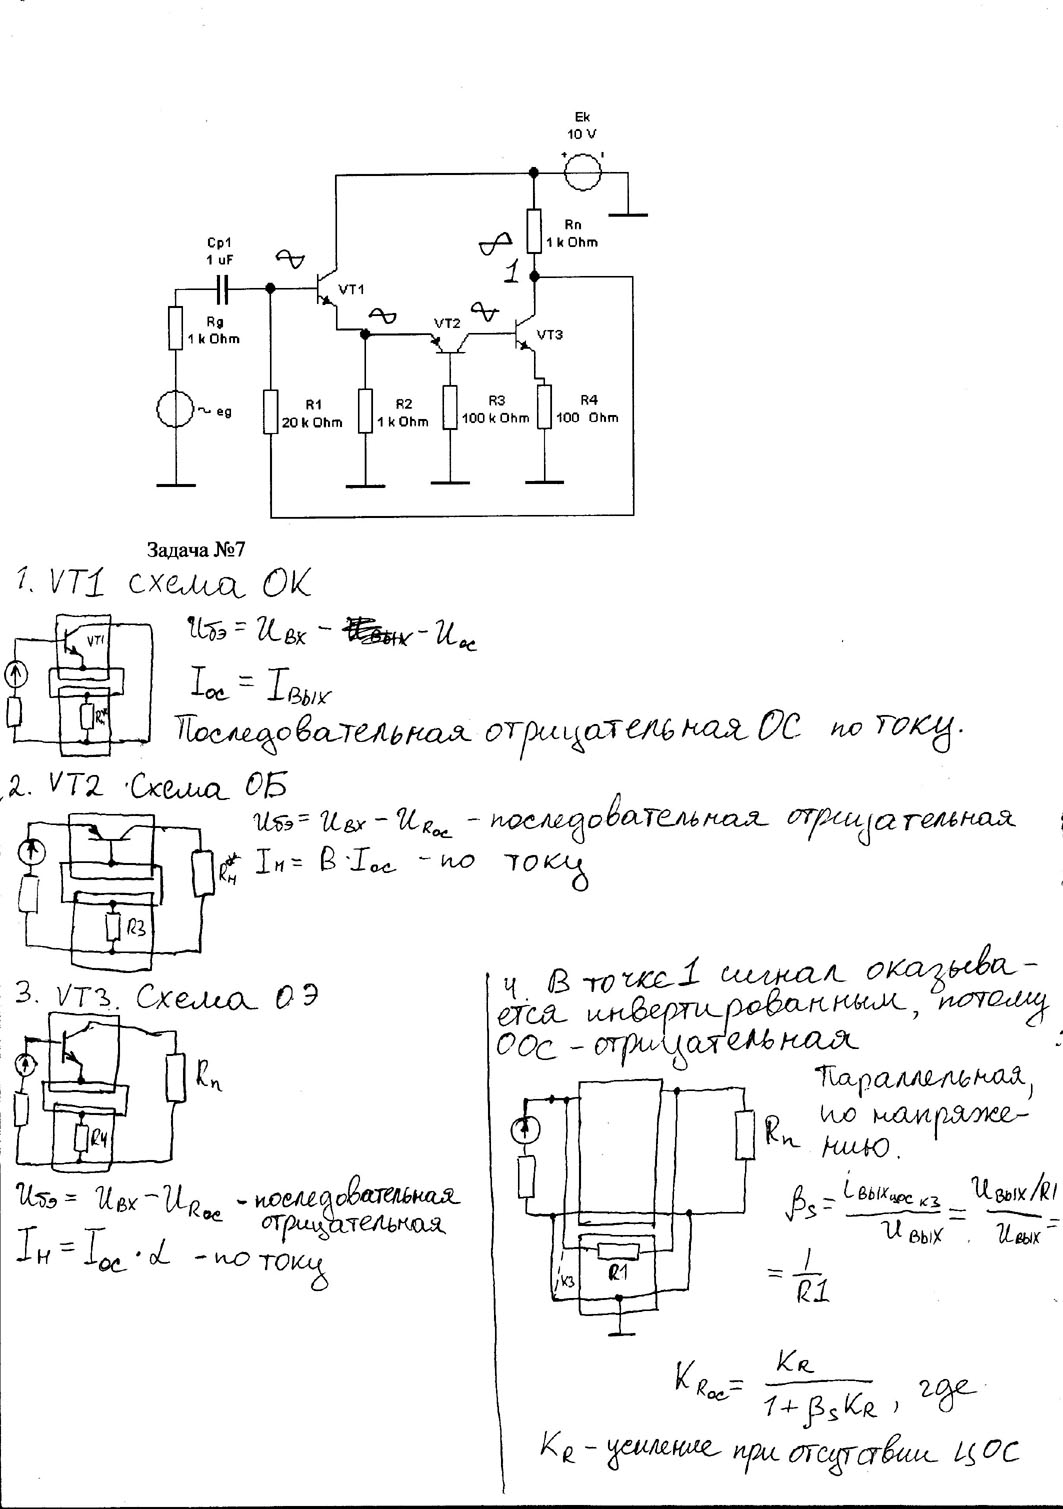 Ek
10 V
+
Rn
1 k Ohm
1
Cp1
1 uF
VT1
Rg
1 k Ohm
VT2
VT3
~ eg
R1
20 k Ohm
R2
1 k Ohm
R3
100 k Ohm
R4
100 Ohm
Задача №7
1. VT1 схема ОК
VT1
Uбэ = Uвх - - Uос
Iос = Iвых
Последовательная отрицательная ОС по току.
2. VT2 Схема ОБ
Rн*
R3
Uбэ = Uвх - URос - последовательная отрицательная
Iн = B·Iос - по току
3. VT3. Схема ОЭ
Rn
R4
Uбэ = Uвх - URос - последовательная
отрицательная
Iн = Iос · α - по току
4. В точке 1 сигнал оказыва-
ется инвертированным, потому
ООС - отрицательная
Параллельная,
по напряже-
нию.
Rn
R1
кз
βs = iвых цос кз / Uвых = Uвых/R1 / Uвых =
= 1/R1
KRос = KR / 1 + βsKR, где
KR - усиление при отсутствии ЦОС